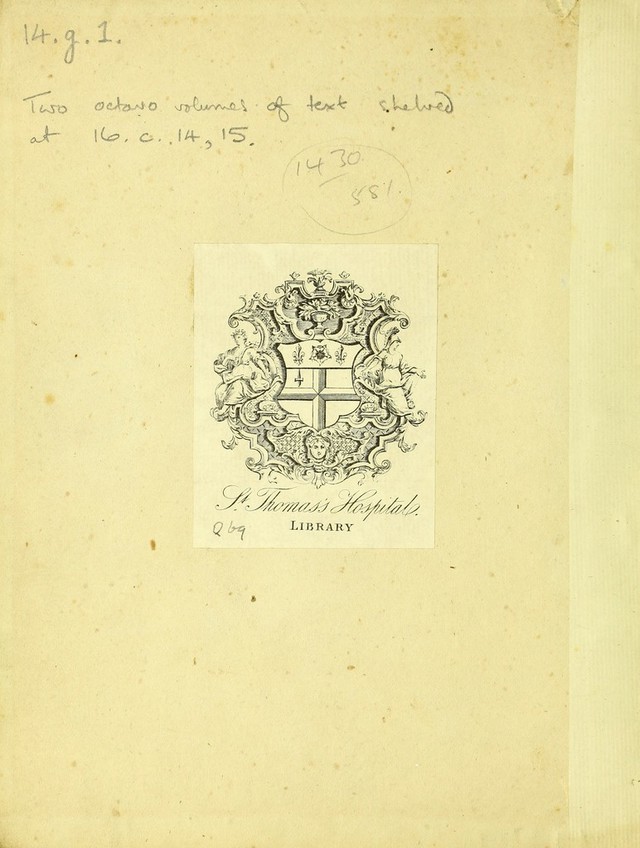 14.g.1.
Two octavo volumes of text shelved
at 16.c.14,15.
1430
58/.
St. Thomas's Hospital.
LIBRARY